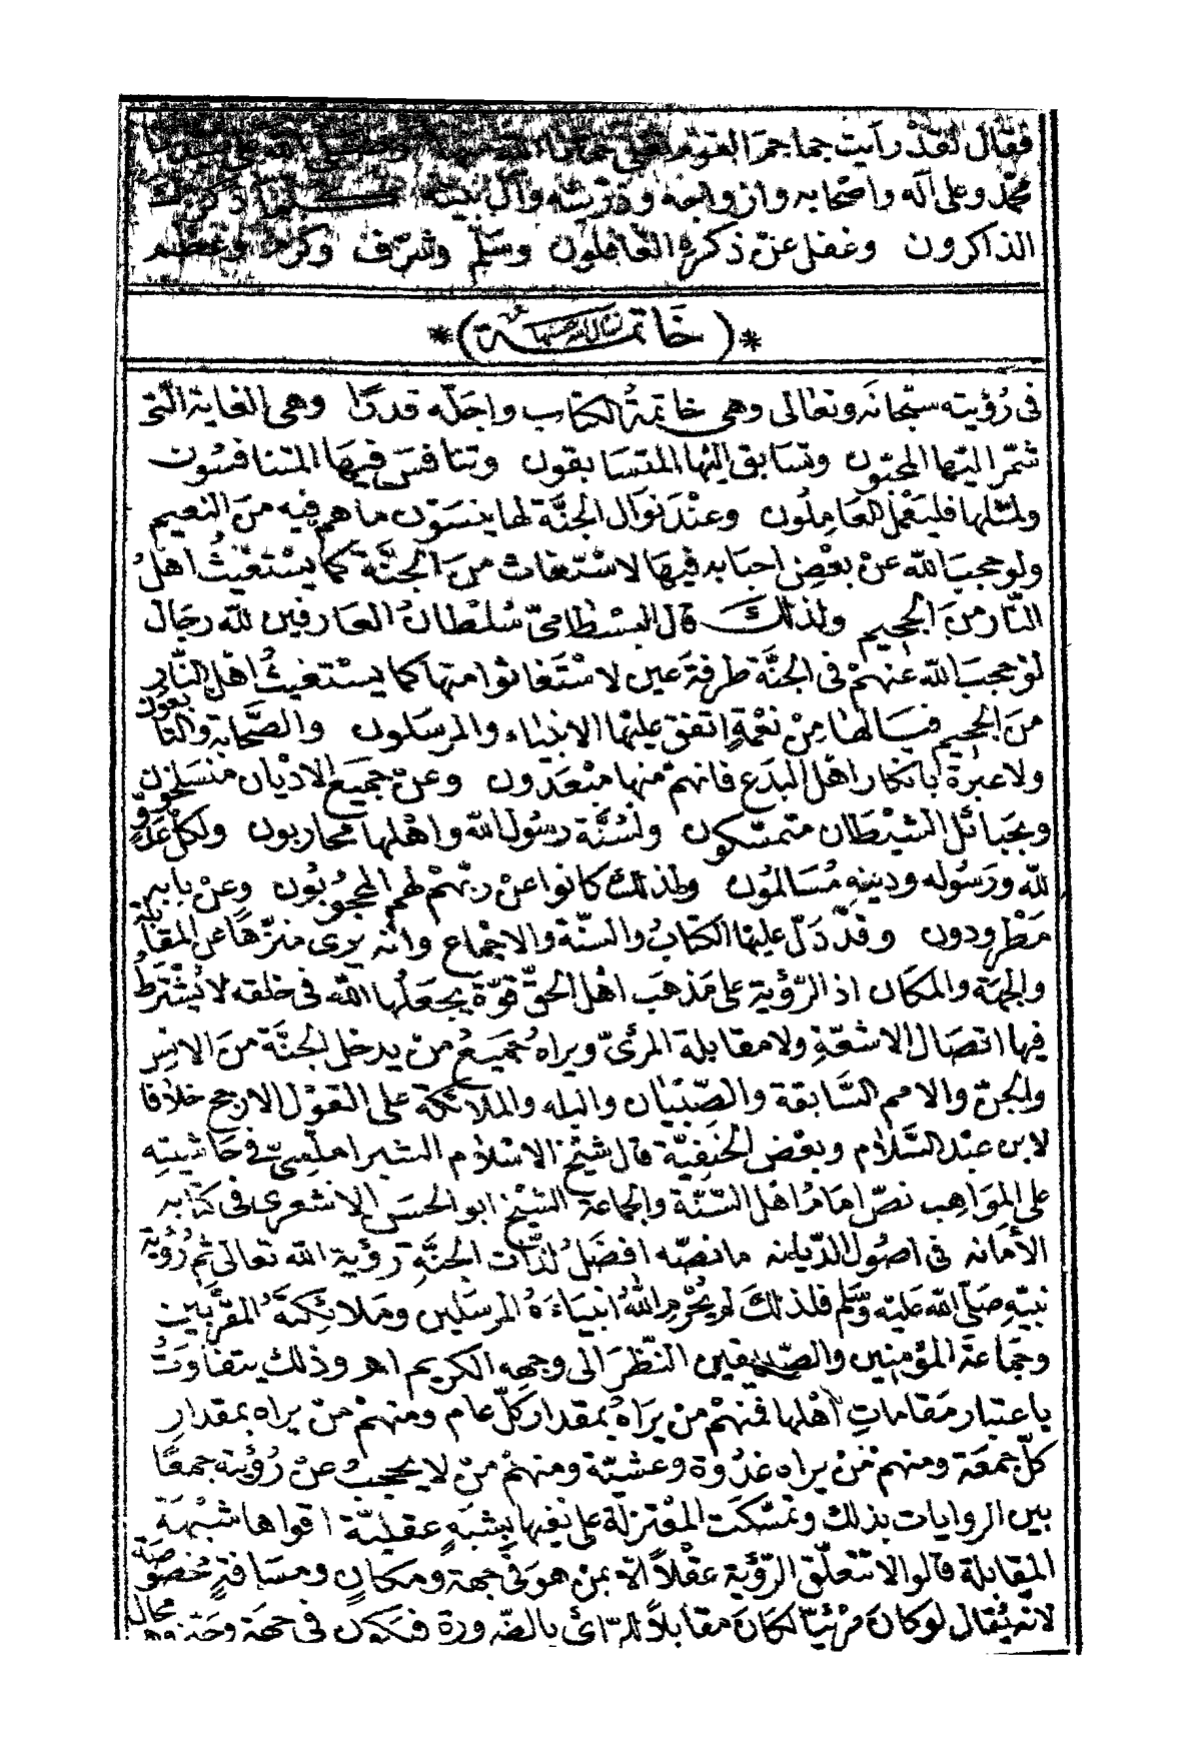 فقال لقد رأيت جماجم القوم
محمد وعلى آله واصحابه وازواجه وذريته وآل بيته كلما ذكرك
الذاكرون وغفل عن ذكره الغافلون وسلم وشرف وكرم وعظم
*( خَاتمة )*
فى رُؤيته سبحانَه وتعالى وهى خاتمةُ الكتاب واجلّه قدرًا وهى الغاية الّتى
شمّر اليْها المحبّون وتسَابق اليْها المتسَابقون وتنافسَ فيهَا المتنافسُون
ولمثلها فليَعْمل العَامِلُون وعنْدَ نوَال الجنَّة لها ينسَوْن ما هم فيه منَ النعيم
ولو حجبَ الله عنْ بعْضِ احبَابه فيهَا لاسْتغاث منَ الجنَّة كما يسْتغيْثُ اهْلُ
النّار منَ الجحيم ولذلك قال البسْطامىّ سُلطانُ العارفين لله رجَال
لوْ حجبَ الله عنهمْ فى الجنَّة طرفةَ عين لاسْتَغاثوا منها كما يسْتغيثُ اهْل النَّار
منَ الجحيم فيَالها مِنْ نعْمةٍ اتفق عليْها الانبيَاء والمرسَلون والصَّحابة والتّابعُون
ولا عبرة بانكار اهْل البدَع فانهمْ منها مبْعَدُون وعنْ جميع الاديْان منسَلخون
وبحبَائل الشيْطان متمسّكون ولسُنَّة رسُول الله واهْلها محاربون ولكلّ عدُوّ
لله ورَسُوله ودينهِ مُسَالمُون ولذلك كانوا عنْ ربّهمْ لهم المحجُوبُون وعنْ بابه
مَطْرودون وقدْ دَلّ عليْها الكتابُ والسنّة والاجْماع وانّه يرى منزّهًا عن المقابلة
والجهَة والمكان اذ الرّؤية على مَذهَب اهْل الحقّ قوّة يجعَلُها الله فى خلقه لا يُشْتَرَط
فيها اتصَال الاشعّةِ ولا مقابلة المرئىّ ويراه جميعُ منْ يدخل الجنَّة منَ الانِس
والجنّ والامم السَّابقة والصِّبيَان والبله والملائكة على القوْل الارجح خلافا
لابن عبْد السَّلام وبعْض الحنفيّة قال شيْخ الاسْلام الشبراملّسىّ فى حَاشيتِه
على المواهِب نصّ امَامُ اهْل السّنّة والجماعة الشيْخ ابو الحسَن الاشعرى فى كتابه
الأمانه فى اصُول الدّيانه ما نصّه افضَلُ لذّات الجنَّةِ رؤية الله تعالى ثمَّ رُؤية
نبيّه صَلّى الله عَليْه وسَّلم فلذلكَ لم يُحْرِم اللهُ انبيَاءَهُ المرسَلين ومَلائِكتَهُ المقرَّبين
وجمَاعةَ المؤمنِين والصّدّيقين النظرَ الى وجهِه الكريم اهـ وذلك يتفاوَتُ
باعتبار مَقاماتِ اهْلها فمنهمْ منْ يرَاهُ بمقدار كلّ عام ومنهمْ منْ يراه بمقدارِ
كلّ جمعَة ومنهمْ مَنْ يراه غدُوة وعشيّة ومنهمْ منْ لا يحجبُ عنْ رُؤيته جمعًا
بين الروايات بذلك وتمسّكت المعْتزلة على نفيها بِشبَهٍ عقليّة اقواها شبْهَة
المقابلة قالوا لا تتعلّق الرّؤية عقْلاً الاّ بمن هوَ فى جهة ومكانٍ ومسَافةٍ مخصُوصَة
لانه يُقال لوكانَ مرْئيّا لكانَ مقابلاً للرّائى بالضّرورة فيكون فى جهَة وحَيّز وهو محال